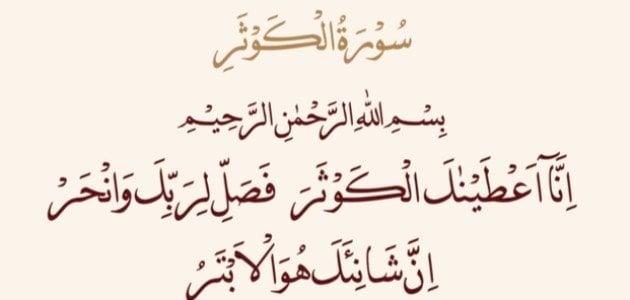 سُوْرَةُ الْكَوْثَرِ
بِسْمِ اللهِ الرَّحْمٰنِ الرَّحِيْمِ
اِنَّآ اَعْطَيْنٰكَ الْكَوْثَرَ فَصَلِّ لِرَبِّكَ وَانْحَرْ
اِنَّ شَانِئَكَ هُوَ الْاَبْتَرُ